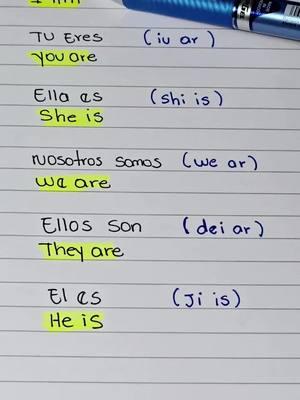 TU Eres (iu ar)
you are
Ella es (shi is)
She is
Nosotros somos (we ar)
we are
Ellos son (dei ar)
They are
El es (Ji is)
He is